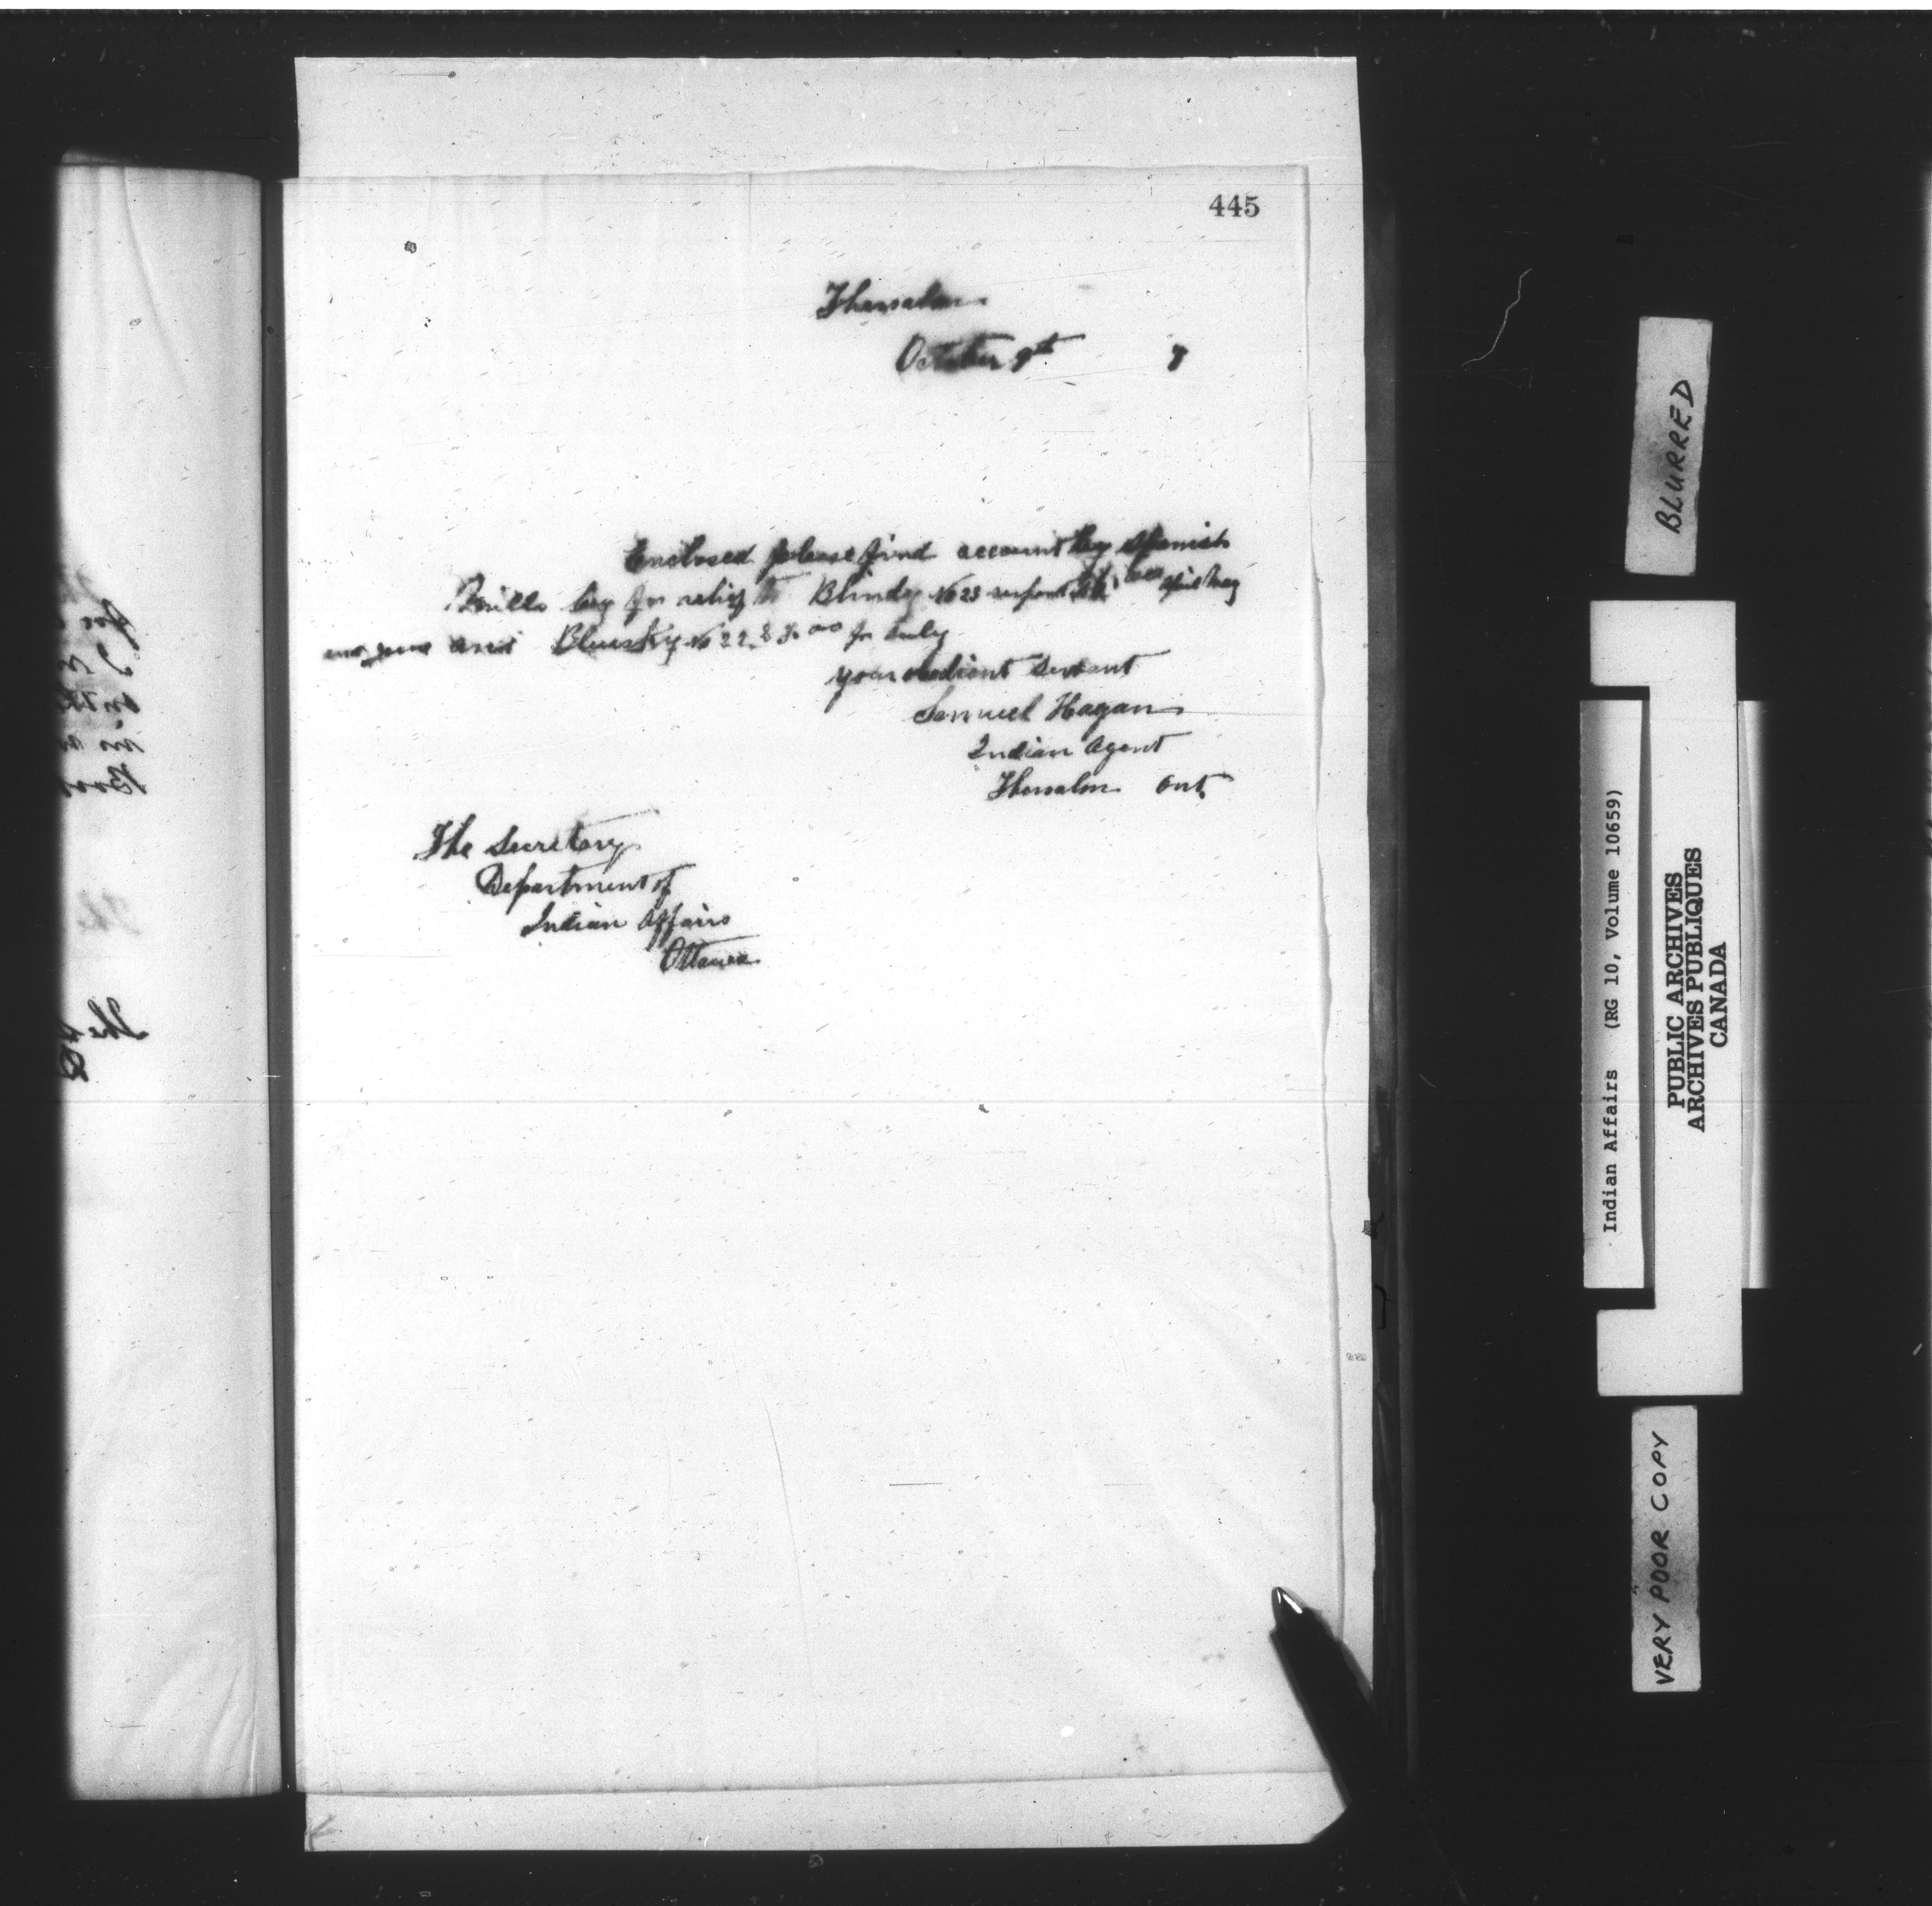 445
Thessalon
October 9th 7
Enclosed please find account by Spanish
Mills Coy for relief to Blindy No 23 April May
and June and Bluesky No 22 for July
your obedient Servant
Samuel Hagan
Indian Agent
Thessalon Ont.
The Secretary
Department of
Indian Affairs
Ottawa
BLURRED
Indian Affairs (RG 10, Volume 10659)
PUBLIC ARCHIVES
ARCHIVES PUBLIQUES
CANADA
VERY POOR COPY